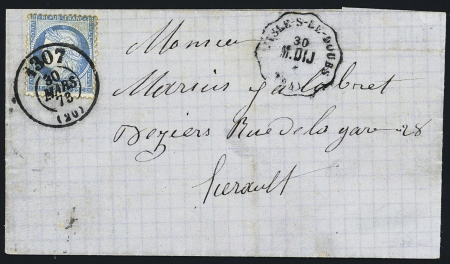 1307
30
MARS
78
(20)
L'ISLE-S-LE-DOUBS
30
M.DIJ
Monsieur
Marius Jalabret
Beziers Rue de la gare 28
Herault